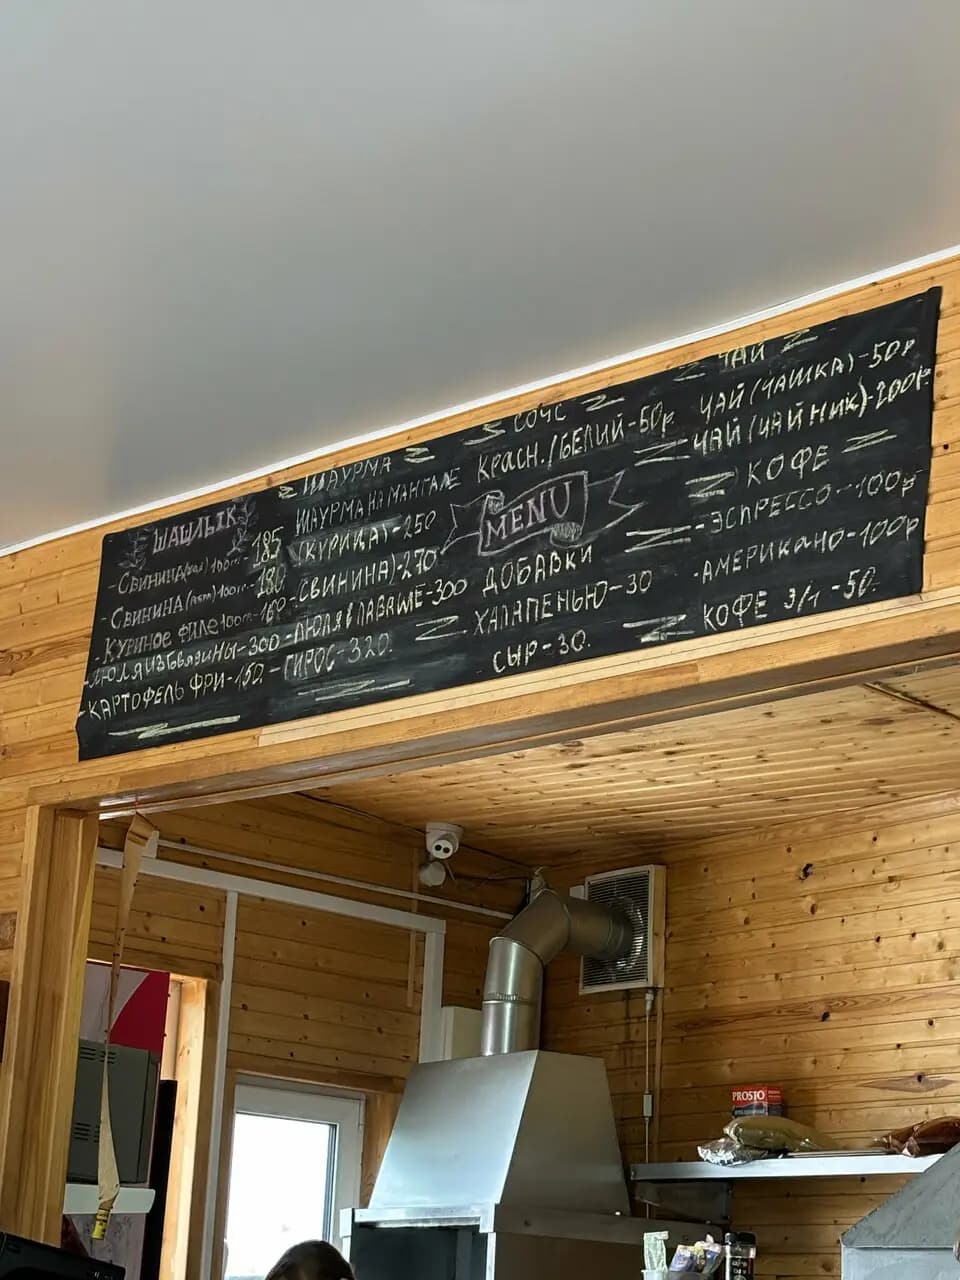 ШАШЛЫК
-СВИНИНА 100гр- 185
-СВИНИНА 100гр- 180
-КУРИНОЕ ФИЛЕ 100гр- 160
-ЛЮЛЯ ИЗ ГОВЯДИНЫ-300
-КАРТОФЕЛЬ ФРИ-150.
ШАУРМА
ШАУРМА НА МАНГАЛЕ
(КУРИЦА)-250
(СВИНИНА)-270
-ЛЮЛЯ В ЛАВАШЕ-300
-ГИРОС-320.
СОУС
КРАСН./БЕЛИЙ-50р.
MENU
ДОБАВКИ
ХАЛАПЕНЬЮ-30
СЫР-30.
ЧАЙ
ЧАЙ (ЧАШКА)-50р
ЧАЙ (ЧАЙНИК)-200р.
КОФЕ
-ЭСПРЕССО-100р
-АМЕРИКАНО-100р
КОФЕ 3/1 -50.
PROSTO